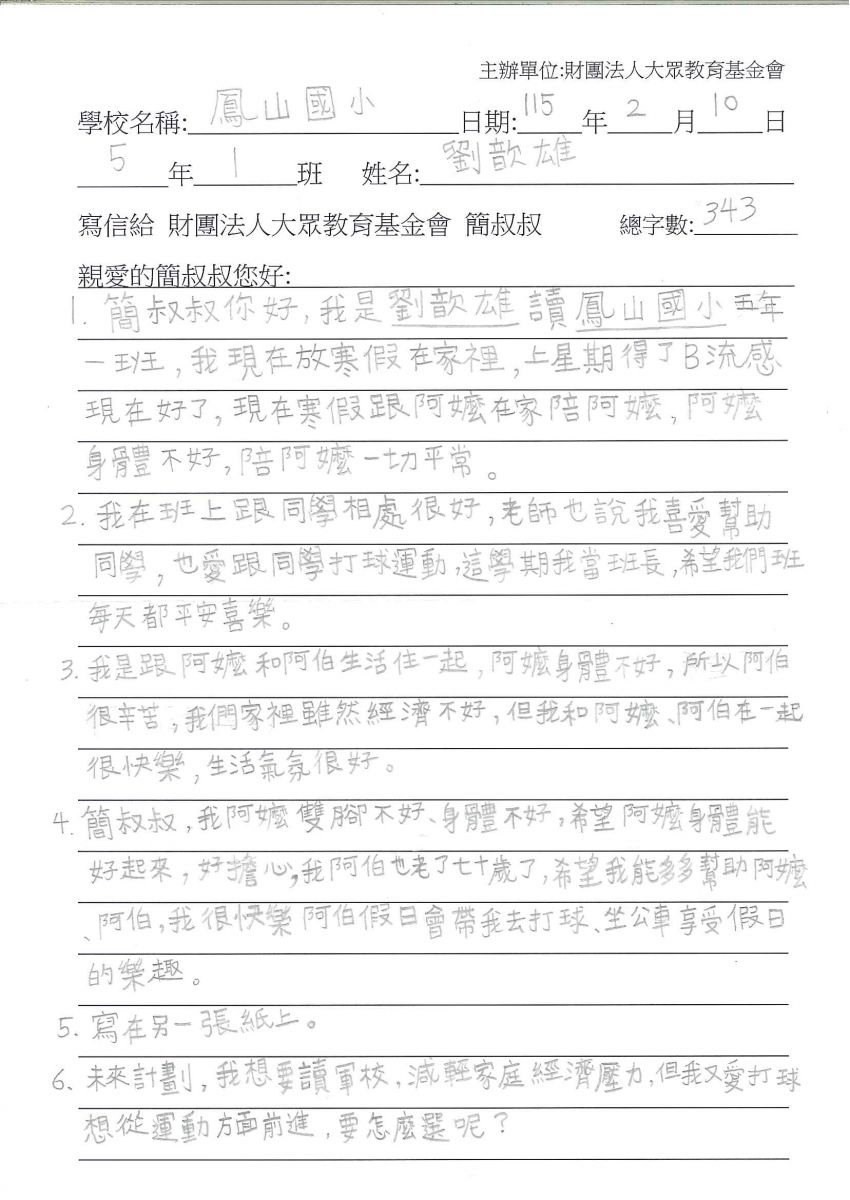 主辦單位:財團法人大眾教育基金會
學校名稱:鳳山國小 日期:115年2月10日
5年1班 姓名:劉歆雄
寫信給 財團法人大眾教育基金會 簡叔叔 總字數:343
親愛的簡叔叔您好:
1. 簡叔叔你好,我是劉歆雄讀鳳山國小五年
一班,我現在放寒假在家裡,上星期得了B流感
現在好了,現在寒假跟阿嬤在家陪阿嬤,阿嬤
身體不好,陪阿嬤一切平常。
2. 我在班上跟同學相處很好,老師也說我喜愛幫助
同學,也愛跟同學打球運動,這學期我當班長,希望我們班
每天都平安喜樂。
3. 我是跟阿嬤和阿伯生活住一起,阿嬤身體不好,所以阿伯
很辛苦,我們家裡雖然經濟不好,但我和阿嬤、阿伯在一起
很快樂,生活氣氛很好。
4. 簡叔叔,我阿嬤雙腳不好、身體不好,希望阿嬤身體能
好起來,好擔心,我阿伯也老了七十歲了,希望我能多多幫助阿嬤
、阿伯,我很快樂阿伯假日會帶我去打球、坐公車享受假日
的樂趣。
5. 寫在另一張紙上。
6. 未來計劃,我想要讀軍校,減輕家庭經濟壓力,但我又愛打球
想從運動方面前進,要怎麼選呢?